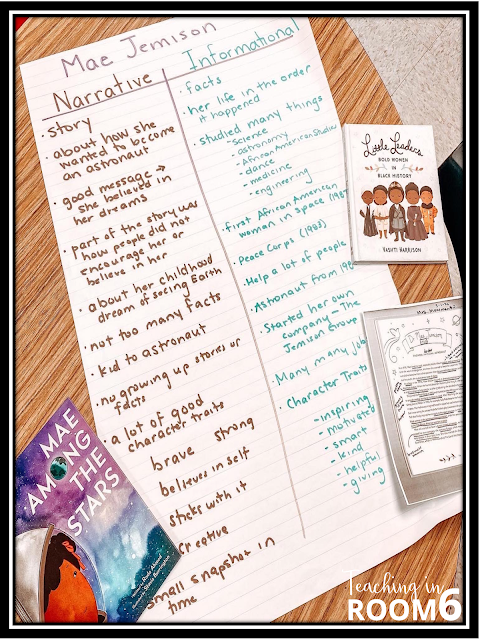 Mae Jemison
Narrative
· story
· about how she
wanted to become
an astronaut
· good message →
she believed in
her dreams
· part of the story was
how people did not
encourage her or
believe in her
· about her childhood
dream of seeing Earth
· not too many facts
· kid to astronaut
· no growing up stories or
facts
· a lot of good
character traits
brave strong
believes in self
sticks with it
creative
small snapshot in
time
Informational
· facts
· her life in the order
it happened
· studied many things
- science
- astronomy
- African American Studies
- dance
- medicine
- engineering
· first African American
woman in space
· Peace Corps (1983)
· Help a lot of people
· Astronaut from
· Started her own
company - The
Jemison Group
· Many many
· Character Traits
- inspiring
- motivated
- smart
- kind
- helpful
- giving
Little Leaders
BOLD WOMEN
IN
BLACK HISTORY
VASHTI HARRISON
MAE
AMONG
THE
STARS
Teaching in
ROOM 6